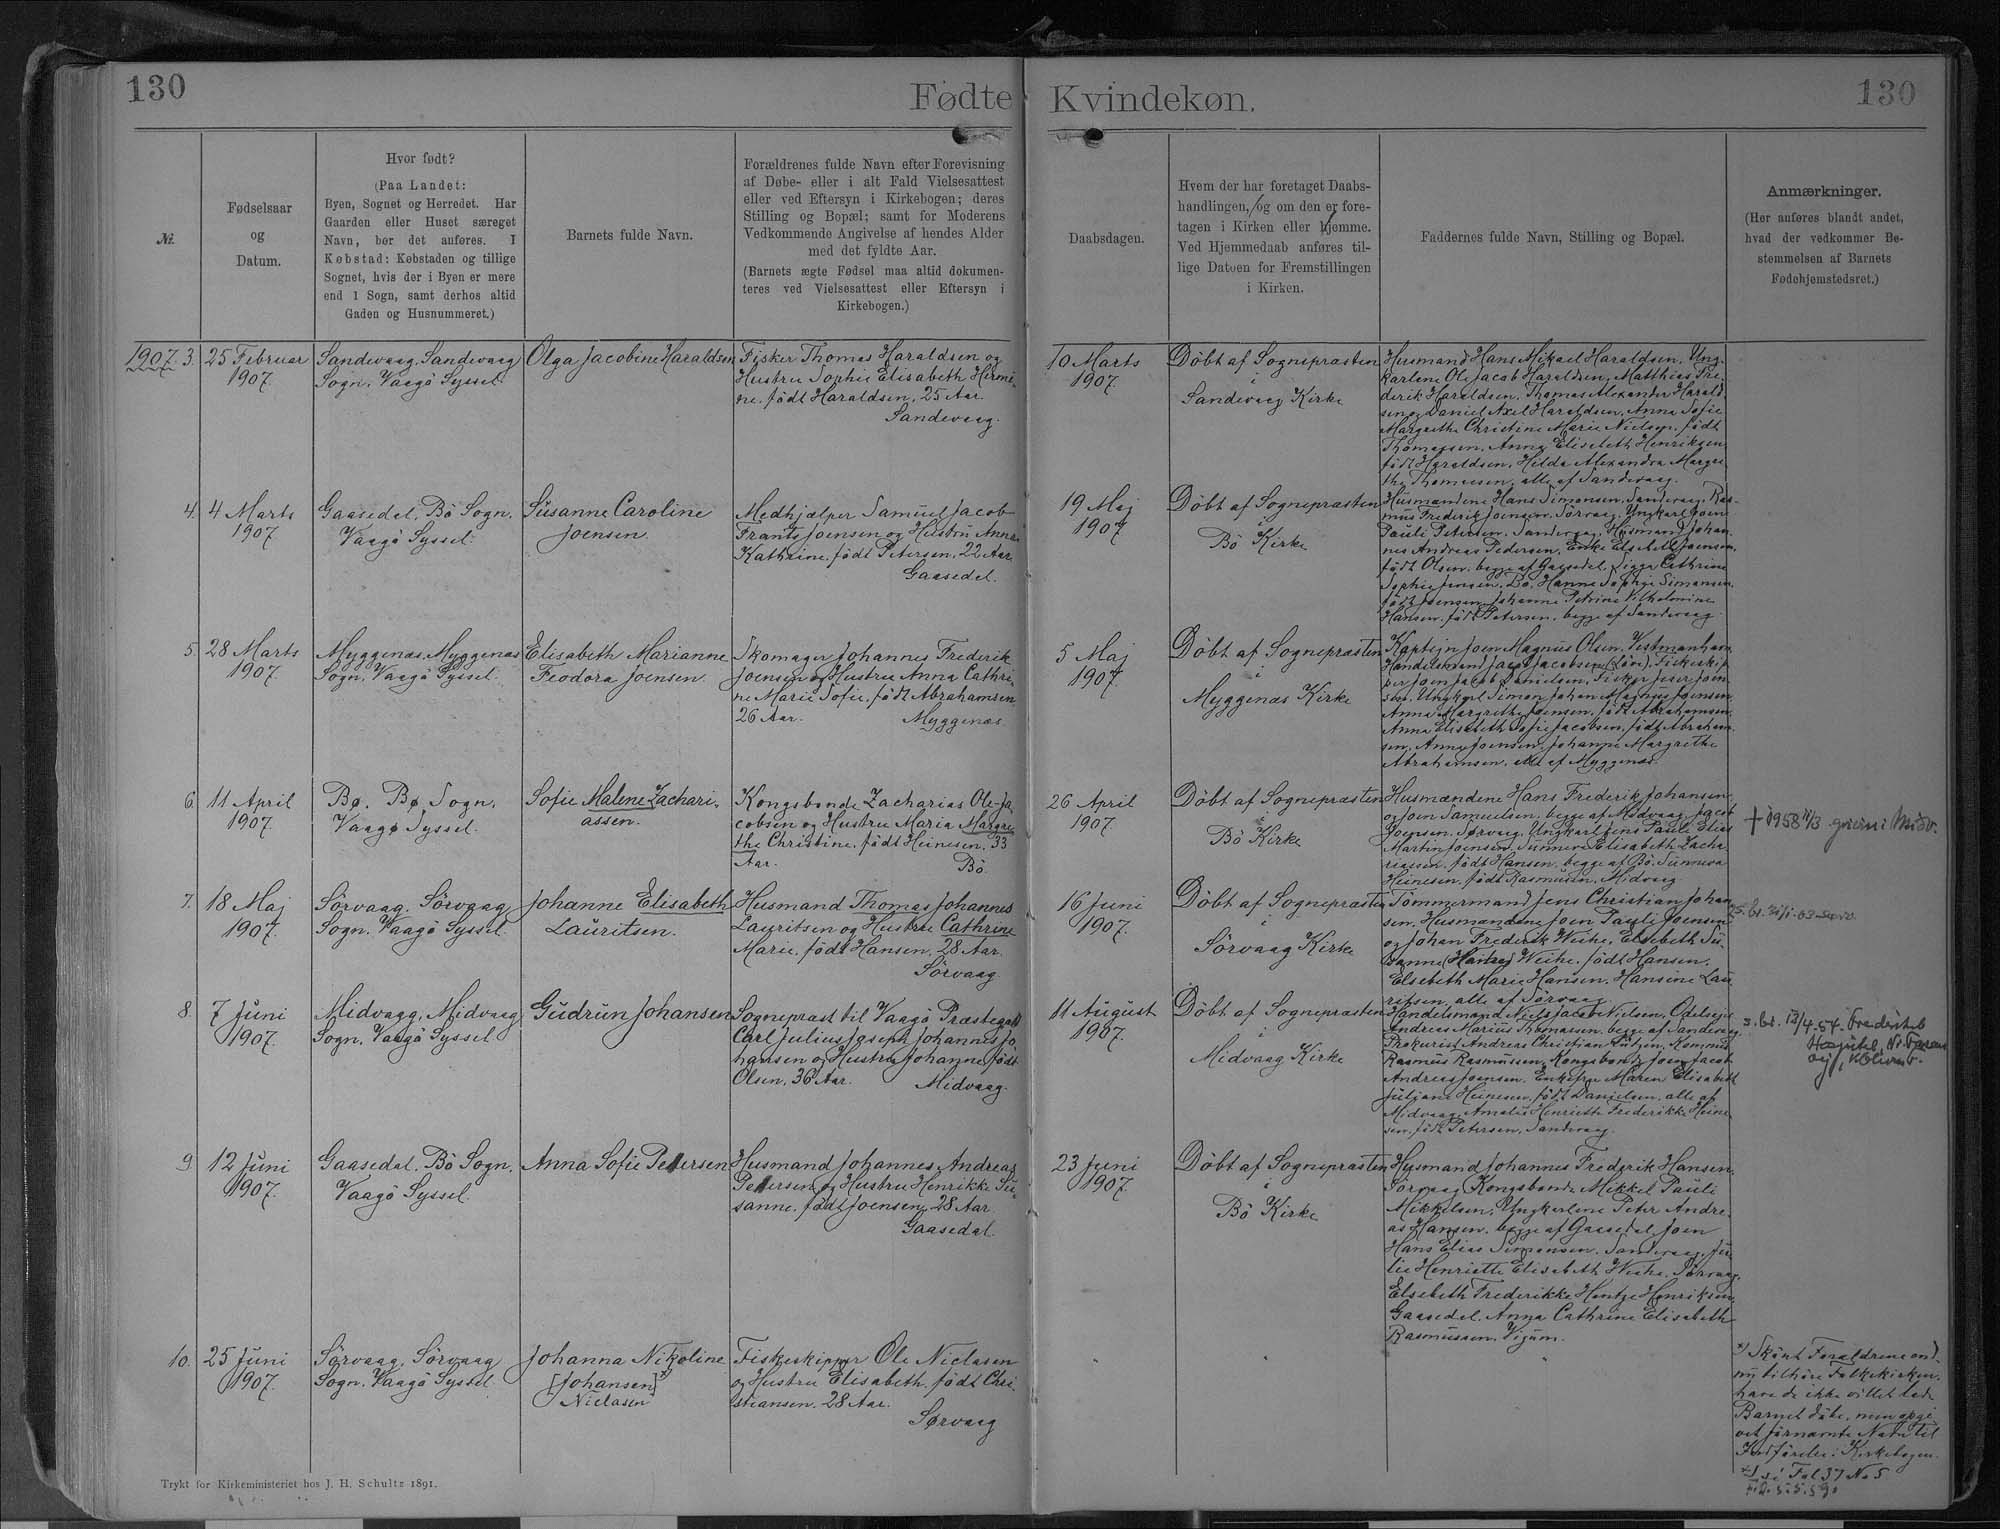 130
Fødte
Kvindekøn.
130
Nr.
Fødselsaar
og
Datum.
Hvor født?
(Paa Landet:
Byen, Sognet og Herredet. Har
Gaarden eller Huset særeget
Navn, bør det anføres. I
Købstad: Købstaden og tillige
Sognet, hvis der i Byen er mere
end 1 Sogn, samt derhos altid
Gaden og Husnummeret.)
Barnets fulde Navn.
Forældrenes fulde Navn efter Forevisning
af Døbe- eller i alt Fald Vielsesattest
eller ved Eftersyn i Kirkebogen; deres
Stilling og Bopæl; samt for Moderens
Vedkommende Angivelse af hendes Alder
med det fyldte Aar.
(Barnets ægte Fødsel maa altid dokumen-
teres ved Vielsesattest eller Eftersyn i
Kirkebogen.)
Daabsdagen.
Hvem der har foretaget Daabs-
handlingen, og om den er fore-
tagen i Kirken eller hjemme.
Ved Hjemmedaab anføres til-
lige Datoen for Fremstillingen
i Kirken.
Faddernes fulde Navn, Stilling og Bopæl.
Anmærkninger.
(Her anføres blandt andet,
hvad der vedkommer Be-
stemmelsen af Barnets
Fødehjemstedsret.)
1907. 3.
25 Februar
1907.
Sandevaag, Sandevaag
Sogn, Vaagö Syssel.
Olga Jacobine Haraldsen
Fisker Thomas Haraldsen og
Hustru Sophie Elisabeth Hermi-
ne, født Haraldsen, 25 Aar.
Sandevaag.
10 Marts
1907.
Döbt af Sognepræsten
i
Sandevaag Kirke
Husmand Hans Mikael Haraldsen, Ung-
karlene Ole Jacob Haraldsen, Matthias Fre-
derik Haraldsen, Thomas Alexander Harald-
sen og Daniel Axel Haraldsen, Anna Sofie
Margrethe Christine Marie Nielsen, født
Thomassen, Anna Elisabeth Henriksen
født Haraldsen, Hilda Alexandra Margre-
the Thomassen, alle af Sandevaag.
4.
4 Marts
1907.
Gaasedal, Bö Sogn,
Vaagö Syssel.
Susanne Caroline
Joensen
Medhjælper Samuel Jacob
Frants Joensen og Hustru Anna
Kathrine, født Petersen, 22 Aar.
Gaasedel.
19 Maj
1907
Döbt af Sognepræsten
i
Bö Kirke
Husmændene Hans Simonsen, Sandevaag, Ras-
mus Frederik Joensen, Sörvaag, Ungkarl Joen
Pauli Petersen, Sandevaag, Husmand Johan-
nes Andreas Pedersen, Enke Elsebeth Joensen,
født Olsen, begge af Gaasedel, Sigga Cathrine
Sophie Jensen, Bö, Hanne Sophie Simonsen,
født Joensen, Johanne Petrine Vilhelmine
Hansen, født Petersen, begge af Sandevaag.
5.
28 Marts
1907.
Myggenæs, Myggenæs
Sogn, Vaagö Syssel.
Elisabeth Marianne
Feodora Joensen.
Skomager Johannes Frederik
Joensen og Hustru Anna Cathri-
ne Marie Sofie, født Abrahamsen
26 Aar. Myggenæs.
5 Maj
1907.
Döbt af Sognepræsten
i
Myggenæs Kirke
Kaptejn Joen Magnus Olsen, Vestmanhavn,
Handelsmand Jacob Jacobsen, Fiskeskip-
per Joen Jacob Danielsen, Fisker Joen-
sen, Ungkarl Simon Johan Magnus Joensen,
Anna Margrethe Joensen, født Abrahamsen,
Anna Elisabeth Sofie Jacobsen, født Abraham-
sen, Anna Joensen, Johanne Margrethe
Abrahamsen, alle af Myggenæs.
6.
11 April
1907.
Bø, Bø Sogn,
Vaagø Syssel.
Sofie Malene Zachari-
assen.
Kongsbonde Zacharias Ole Ja-
cobsen og Hustru Maria Margre-
the Christine, født Heinesen, 33
Aar. Bö.
26 April
1907.
Döbt af Sognepræsten
i
Bö Kirke
Husmændene Hans Frederik Johansen
og Joen Samuelsen, begge af Midvaag, Jacob
Joensen, Sörvaag, Ungkarl Jens Pauli Elias
Martin Joensen, Sunneva Elisabeth Zacha-
riassen, født Hansen, begge af Bö, Sunneva
Heinesen, født Rasmussen, Midvaag.
† 1958 11/3 Midv.
7.
18 Maj
1907.
Sörvaag, Sörvaag
Sogn, Vaagö Syssel.
Johanne Elisabeth
Lauritsen.
Husmand Thomas Johannes
Lauritsen og Hustru Cathrine
Marie, født Hansen, 28 Aar.
Sörvaag
16 Juni
1907.
Döbt af Sognepræsten
i
Sörvaag Kirke
Tömmermand Jens Christian Johan-
sen, Husmændene Joen Pauli Joensen
og Johan Frederik Weihe, Elsebeth Su-
sanne Weihe, født Hansen,
Elsebeth Marie Hansen, Hansine Lau-
ritsen, alle af Sörvaag
8.
7 Juni
1907.
Midvaag, Midvaag
Sogn, Vaagö Syssel
Gudrun Johansen
Sognepræst til Vaagö Præstegæld
Carl Julius Joseph Johannes Jo-
hansen og Hustru Johanne, født
Olsen, 36 Aar. Midvaag.
11 August
1907.
Döbt af Sognepræsten
i
Midvaag Kirke
Handelsmand Niels Jacob Nielsen, Odelsejer
Andreas Marius Thomassen, begge af Sandevaag,
Prokurist Andreas Christian Lützen,
Rasmus Rasmussen, Kongsbonde Joen Jacob
Andreas Joensen, Enkefru Maren Elisabeth
Juliane Heinesen, født Danielsen, alle af
Midvaag, Amalie Henriette Frederikke Heine-
sen, født Petersen, Sandevaag.
9.
12 Juni
1907.
Gaasedal, Bö Sogn,
Vaagö Syssel.
Anna Sofie Petersen
Husmand Johannes Andreas
Petersen og Hustru Henrikke Su-
sanne, født Joensen, 28 Aar
Gaasedal.
23 Juni
1907.
Döbt af Sognepræsten
i
Bö Kirke
Husmand Johannes Frederik Hansen,
Sörvaag, Kongsbonde Mikkel Pauli
Mikkelsen, Ungkarlene Peter Andre-
as Hansen, begge af Gaasedal, Joen
Hans Elias Simonsen, Sandevaag, Ju-
lie Henriette Elisabeth Weihe, Sörvaag,
Elsebeth Frederikke Hentze Henriksen,
Gaasedel, Anna Cathrine Elisabeth
Rasmussen, Vigum.
10.
25 Juni
1907.
Sörvaag, Sörvaag
Sogn, Vaagö Syssel
Johanna Nikoline
[Johansen]
Niclasen
Fiskeskipper Ole Niclasen
og Hustru Elisabeth, født Chri-
stiansen, 28 Aar.
Sørvaag
Skönt Forældrene end-
nu tilhöre Folkekirken,
have de ikke villet lade
Barnet döbe, men opgi-
vet fornævnte Navn til
Indförelse i Kirkebogen.
Fol 37 No 5
Trykt for Kirkeministeriet hos J. H. Schultz 1891.